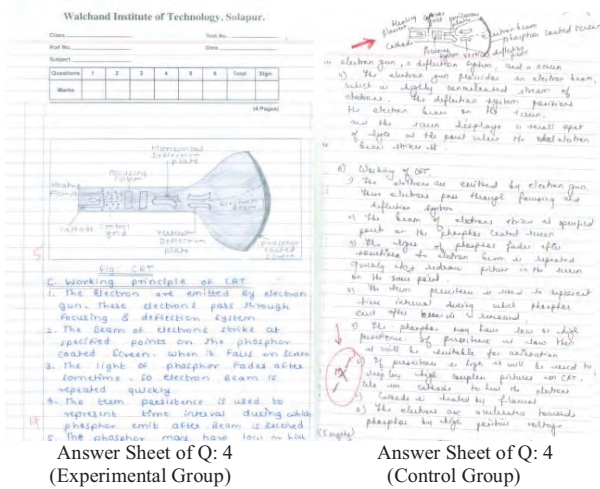 Walchand Institute of Technology, Solapur.
Class
Test No.
Roll No.
Date
Subject
Questions 1 2 3 4 5 6 Total Sign.
Marks
(4 Pages)
Horizontal
Deflection
plate
Focusing
System
Heating
Filament
Electron
Beam
Cathode
Control
grid
Vertical
Deflection
plate
phosphor
coated
Screen
5
Fig CRT
C. Working principle of CRT
1. The Electron are emitted by electron
gun. These electrons pass through
focusing & deflection system
2. The Beam of electrons strike at
specified points on the phosphor
coated screen. when it falls on screen
3. The light of phosphor Fades after
sometime. So electron Beam is
repeated quickly
4. The term persistence is used to
represent time interval during which
phosphor emit after Beam is
5. The phosphor may have low or high
Heating
Filament
control
grid
horizontal
plate
electron beam
phosphor coated screen
Cathode
Focusing
system
vertical deflection
plate
electron gun, a deflection system, and a screen
The electron gun provides an electron beam,
which is highly concentrated stream of
electrons. The deflection system positions
the electron beam on the screen.
and the screen displays a small spot
of light at the point where the electron
beam strikes it
Working of CRT
1) The electrons are emitted by electron gun.
These electrons pass through focusing and
deflection system
2) The beam of electrons strikes at specified
point on the phosphor coated screen
3) The light of phosphor fades after
sometime so electron beam is repeated
quickly to redraw picture on the screen
on the same point
4) The term persistence is used to represent
time interval during which phosphor
emit after beam is removed
5) The phosphor may have low or high
persistence. If persistence is low then
it will be suitable for animation
If persistence is high it will be used to
high complex pictures on CRT.
We use cathode to
Cathode is heated by filament
The electrons are accelerated towards
phosphor by high positive voltage
Answer Sheet of Q: 4
(Experimental Group)
Answer Sheet of Q: 4
(Control Group)